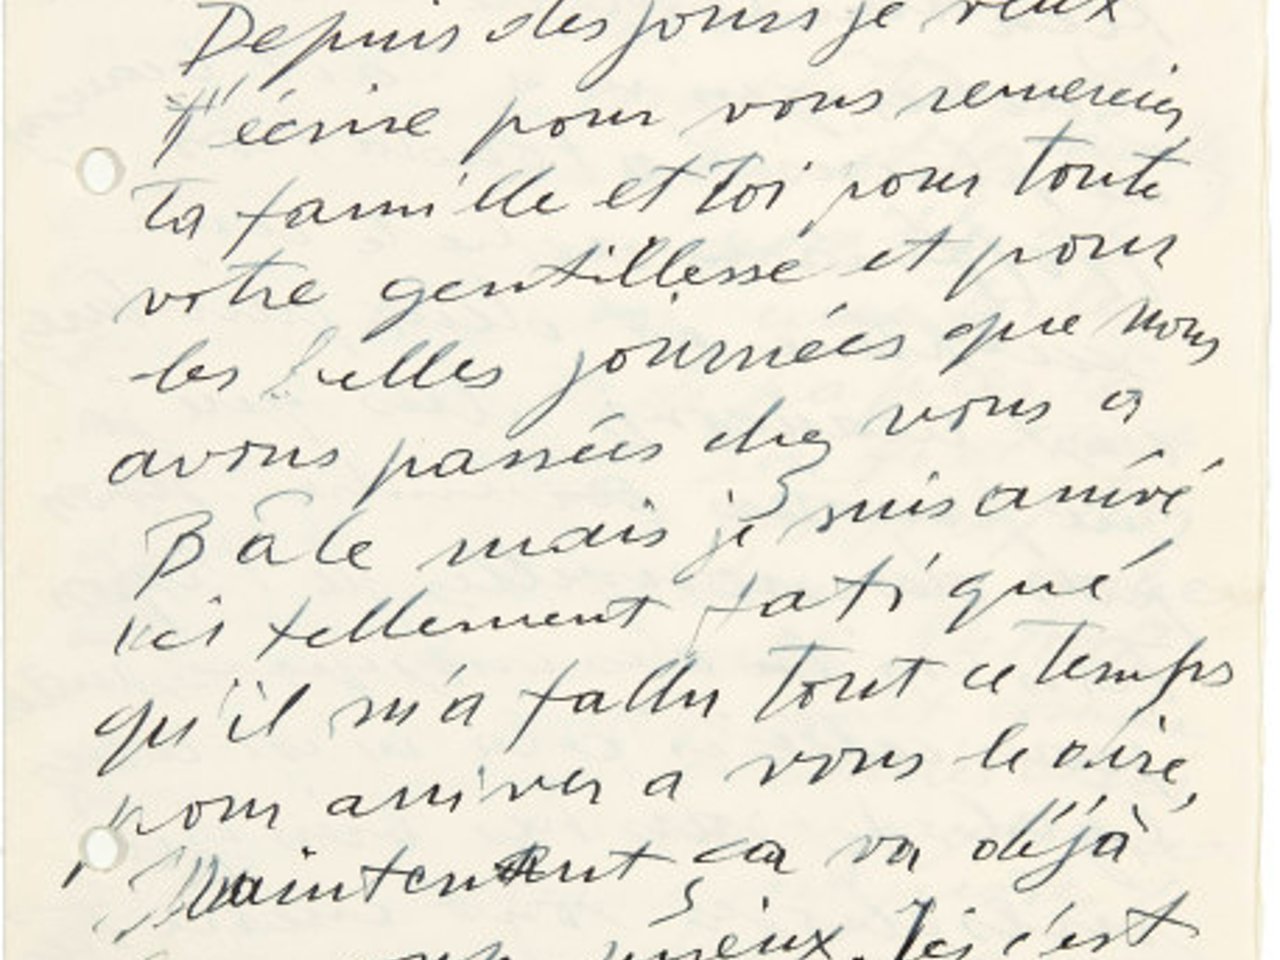 Depuis des jours je veux
t'écrire pour vous remercier
ta famille et toi pour toute
votre gentillesse et pour
les belles journées que nous
avons passées chez vous a
Bâle mais je suis arrivé
ici tellement fatigué
qu'il m'a fallu tout ce temps
pour arriver a vous le dire,
Maintenent ça va déjà
mieux. Ici c'est